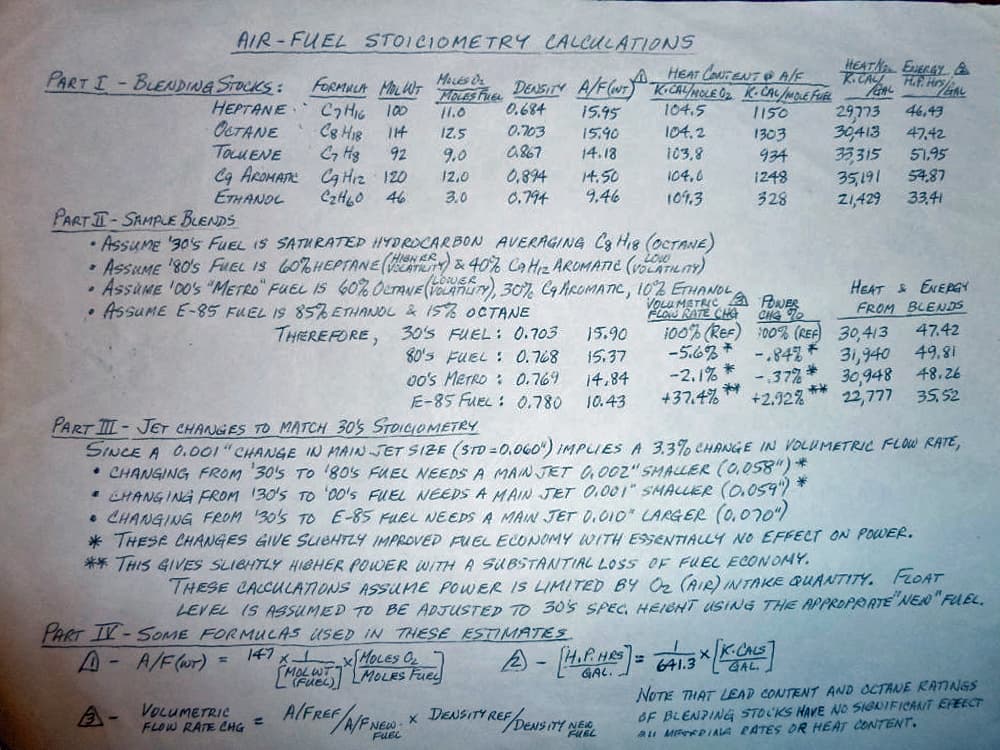 AIR-FUEL STOICIOMETRY CALCULATIONS
PART I - BLENDING STOCKS: FORMULA MOL WT MOLES O2/MOLES FUEL DENSITY A/F (WT) 1 HEAT CONTENT @ A/F K.CAL/MOLE O2 K.CAL/MOLE FUEL HEAT K.CAL/GAL ENERGY 2 H.P. HRS/GAL
HEPTANE C7H16 100 11.0 0.684 15.95 104.5 1150 29,773 46.43
OCTANE C8H18 114 12.5 0.703 15.90 104.2 1303 30,413 47.42
TOLUENE C7H8 92 9.0 0.867 14.18 103.8 934 33,315 51.95
C9 AROMATIC C9H12 120 12.0 0.894 14.50 104.0 1248 35,191 54.87
ETHANOL C2H6O 46 3.0 0.794 9.46 109.3 328 21,429 33.41
PART II - SAMPLE BLENDS
• ASSUME '30'S FUEL IS SATURATED HYDROCARBON AVERAGING C8H18 (OCTANE)
• ASSUME '80'S FUEL IS 60% HEPTANE (HIGHER VOLATILITY) & 40% C9H12 AROMATIC (LOW VOLATILITY)
• ASSUME '00'S "METRO" FUEL IS 60% OCTANE (LOWER VOLATILITY), 30% C9 AROMATIC, 10% ETHANOL
• ASSUME E-85 FUEL IS 85% ETHANOL & 15% OCTANE
VOLUMETRIC 3 FLOW RATE CHG POWER CHG % HEAT & ENERGY FROM BLENDS
THEREFORE, 30'S FUEL: 0.703 15.90 100% (REF) 100% (REF) 30,413 47.42
80'S FUEL: 0.768 15.37 -5.6% * -.84% * 31,940 49.81
00'S METRO: 0.769 14.84 -2.1% * -.37% * 30,948 48.26
E-85 FUEL: 0.780 10.43 +37.4% ** +2.92% ** 22,777 35.52
PART III - JET CHANGES TO MATCH 30'S STOICIOMETRY
SINCE A 0.001" CHANGE IN MAIN JET SIZE (STD=0.060") IMPLIES A 3.3% CHANGE IN VOLUMETRIC FLOW RATE,
• CHANGING FROM '30'S TO '80'S FUEL NEEDS A MAIN JET 0.002" SMALLER (0.058") *
• CHANGING FROM '30'S TO '00'S FUEL NEEDS A MAIN JET 0.001" SMALLER (0.059") *
• CHANGING FROM '30'S TO E-85 FUEL NEEDS A MAIN JET 0.010" LARGER (0.070")
* THESE CHANGES GIVE SLIGHTLY IMPROVED FUEL ECONOMY WITH ESSENTIALLY NO EFFECT ON POWER.
** THIS GIVES SLIGHTLY HIGHER POWER WITH A SUBSTANTIAL LOSS OF FUEL ECONOMY.
THESE CALCULATIONS ASSUME POWER IS LIMITED BY O2 (AIR) INTAKE QUANTITY. FLOAT
LEVEL IS ASSUMED TO BE ADJUSTED TO 30'S SPEC. HEIGHT USING THE APPROPRIATE "NEW" FUEL.
PART IV - SOME FORMULAS USED IN THESE ESTIMATES
1 - A/F (WT) = 147 × 1/[MOL WT (FUEL)] × [MOLES O2/MOLES FUEL] 2 - [H.P. HRS/GAL.] = 1/641.3 × [K.CALS/GAL.]
3 - VOLUMETRIC FLOW RATE CHG = A/F REF/A/F NEW FUEL × DENSITY REF/DENSITY NEW FUEL
NOTE THAT LEAD CONTENT AND OCTANE RATINGS
OF BLENDING STOCKS HAVE NO SIGNIFICANT EFFECT
ON METERING RATES OR HEAT CONTENT.